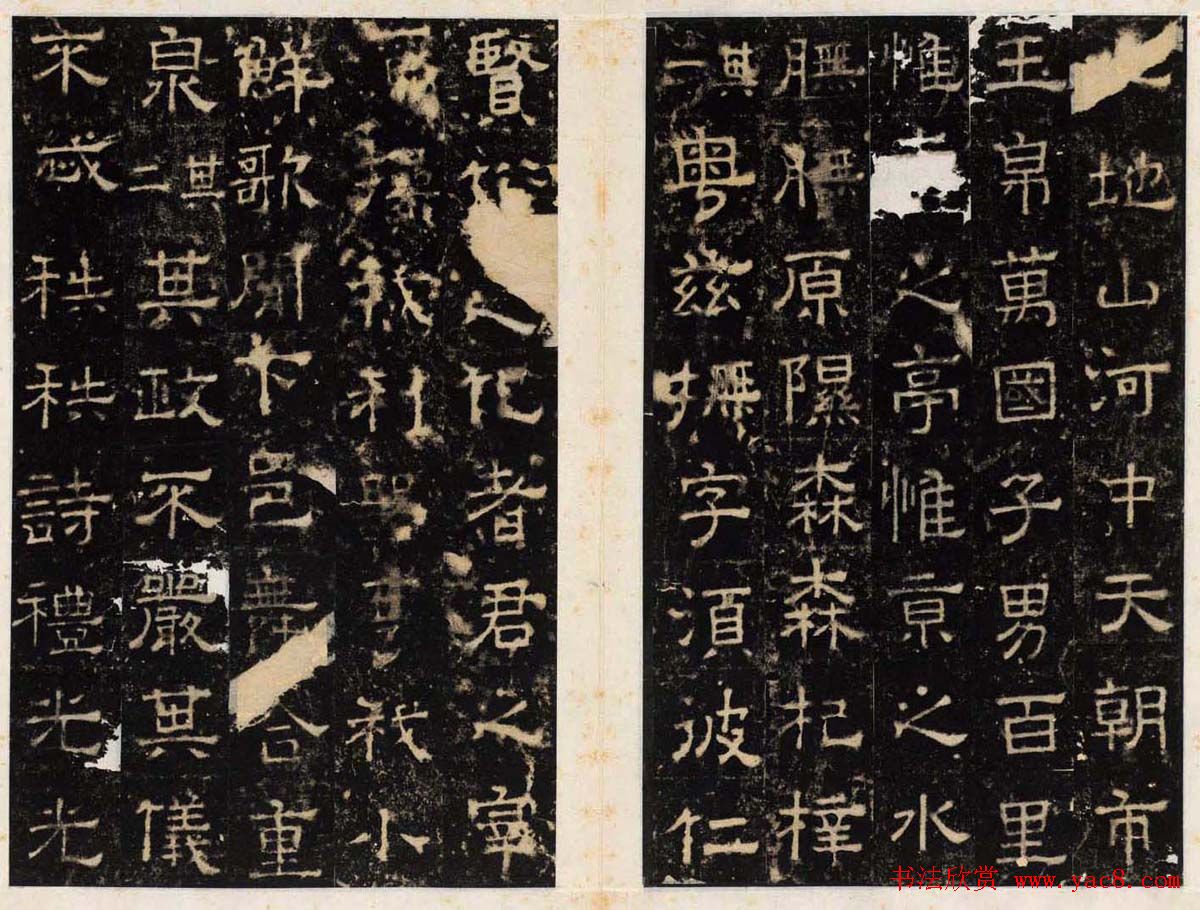 地山河中天朝市
玉帛萬國子男百里
惟之亭惟京之水
膴膴原隰森森杞梓
其二粤兹撫字須彼仁
賢之化者君之宰
操利器亨我小
鮮歌聞卞邑舞合重
泉其二其政不嚴其儀
不忒秩秩詩禮光光
书法欣赏 www.yac8.com